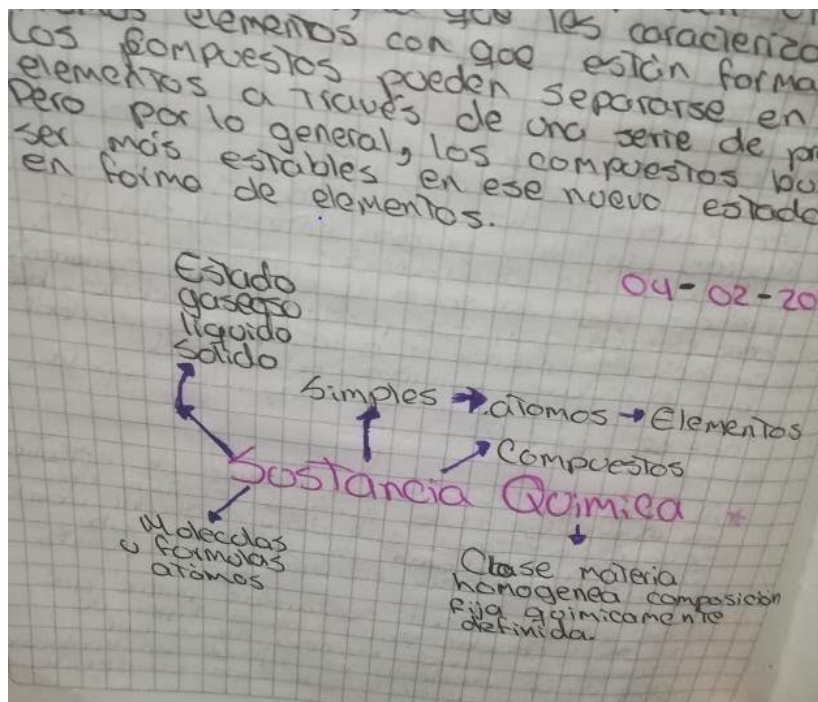 elementos que les caracteriza
elementos con que están forma
Los compuestos pueden separarse en
elementos a través de una serie de pr
Pero por lo general, los compuestos bu
ser más estables en ese nuevo estado
en forma de elementos.
04-02-20
Estado
gaseoso
liquido
Solido
Simples → átomos → Elementos
Compuestos
Sustancia Quimica *
Moleculas
u formulas
atomos
Clase materia
homogenea composición
fija quimicamente
definida.